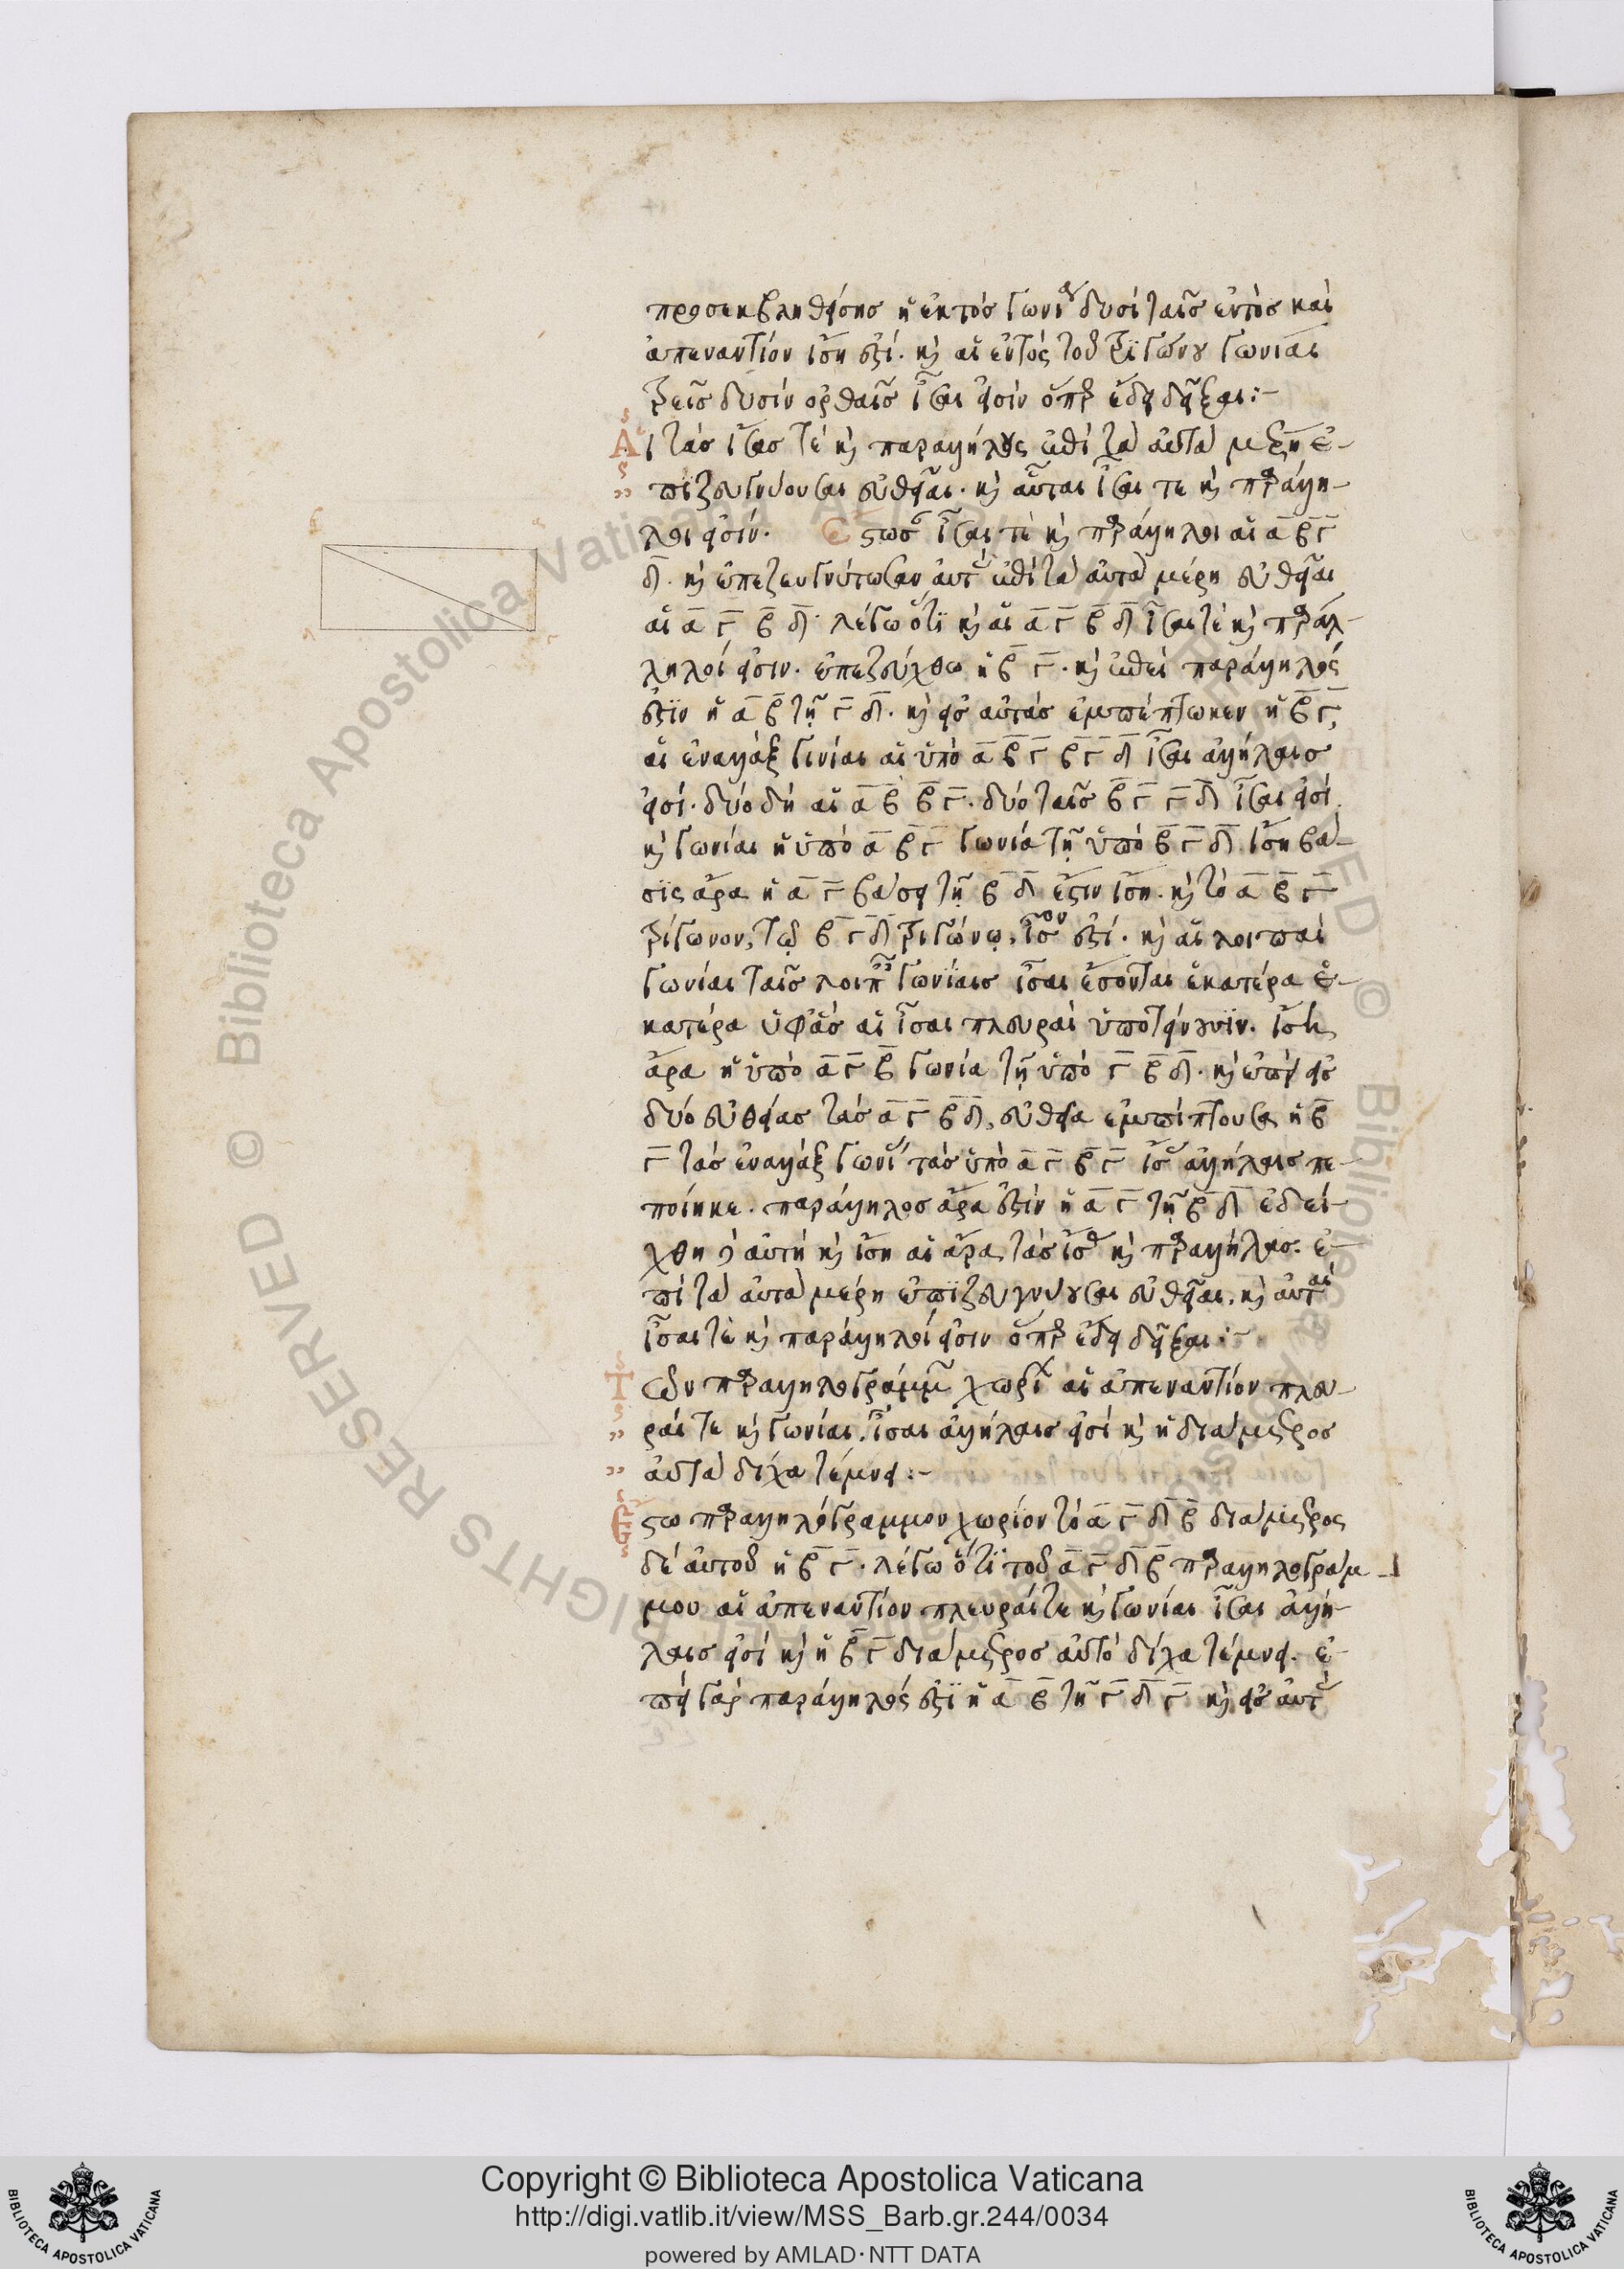 προσεκβληθείσης ἡ ἐκτὸς γωνία δυσὶ ταῖς ἐντὸς καὶ
ἀπεναντίον ἴση ἐστί. κ αἱ ἐντὸς τοῦ τριγώνου γωνίαι
τρεῖς δυσὶν ὀρθαῖς ἴσαι εἰσίν ὅπερ ἔδει δεῖξαι:-
Αἱ τὰς ἴσας τὲ κ παραλλήλους ἐπὶ τὰ αὐτὰ μέρη ἐ-
πιζευγνύουσαι εὐθεῖαι. κ αὗται ἴσαι τε κ παράλλη-
λοι εἰσίν. Εστωσ ἴσαι τὲ κ παράλληλοι αἱ α β γ
δ. κ ἐπεζευγνύτωσαν αὐτὰς ἐπὶ τὰ αὐτὰ μέρη εὐθεῖαι
αἱ α γ β δ. λέγω ὅτι κ αἱ α γ β δ ἴσαι τὲ κ παράλ-
ληλοί εἰσιν. ἐπεζεύχθω ἡ β γ. κ ἐπεὶ παράλληλός
ἐστιν ἡ α β τῇ γ δ. κ εἰς αὐτὰς ἐμπέπτωκεν ἡ β γ,
αἱ ἐναλλὰξ γωνίαι αἱ ὑπὸ α β γ β γ δ ἴσαι ἀλλήλαις
εἰσί. δύο δὴ αἱ α β β γ. δύο ταῖς β γ γ δ ἴσαι εἰσί.
κ γωνίαι ἡ ὑπὸ α β γ γωνία τῇ ὑπὸ β γ δ ἴση βά-
σις ἄρα ἡ α γ βάσει τῇ β δ ἔστιν ἴση. κ τὸ α β γ
τρίγωνον, τῷ β γ δ τριγώνῳ, ἴσον ἐστί. κ αἱ λοιπαὶ
γωνίαι ταῖς λοιπαῖς γωνίαις ἴσαι ἔσονται ἑκατέρα ἑ-
κατέρα ὑφ ἃς αἱ ἴσαι πλευραὶ ὑποτείνουσιν. ἴση
ἄρα ἡ ὑπὸ α γ β γωνία τῇ ὑπὸ γ β δ. κ ἐπεὶ εἰς
δύο εὐθείας τὰς α γ β δ, εὐθεῖα ἐμπίπτουσα ἡ β
γ τὰς ἐναλλὰξ γωνίας τὰς ὑπὸ α γ β γ ἴσας ἀλλήλαις πε-
ποίηκε. παράλληλος ἄρα ἐστὶν ἡ α γ τῇ β δ ἐδεί-
χθη δὲ αὐτὴ κ ἴση αἱ ἄρα τὰς ἴσας κ παραλλήλους. ἐ-
πὶ τὰ αὐτὰ μέρη ἐπιζευγνύουσαι εὐθεῖαι, κ αὐταὶ
ἴσαι τὲ κ παράλληλοί εἰσιν ὅπερ ἔδει δεῖξαι:-
Τῶν παραλληλογράμμων χωρίων αἱ ἀπεναντίον πλευ-
ραί τε κ γωνίαι, ἴσαι ἀλλήλαις εἰσὶ κ ἡ διάμετρος
αὐτὰ δίχα τέμνει:-
Εστω παραλληλόγραμμον χωρίον τὸ α γ δ β διάμετρος
δὲ αὐτοῦ ἡ β γ. λέγω ὅτι τοῦ α γ δ β παραλληλογράμ-
μου αἱ ἀπεναντίον πλευραί τε κ γωνίαι ἴσαι ἀλλή-
λαις εἰσὶ κ ἡ β γ διάμετρος αὐτὸ δίχα τέμνει. ἐ-
πεὶ γὰρ παράλληλός ἐστι ἡ α β τῇ γ δ γ κ εἰς αὐτὰς
Copyright © Biblioteca Apostolica Vaticana
http://digi.vatlib.it/view/MSS_Barb.gr.244/0034
powered by AMLAD·NTT DATA
BIBLIOTECA APOSTOLICA VATICANA
BIBLIOTECA APOSTOLICA VATICANA